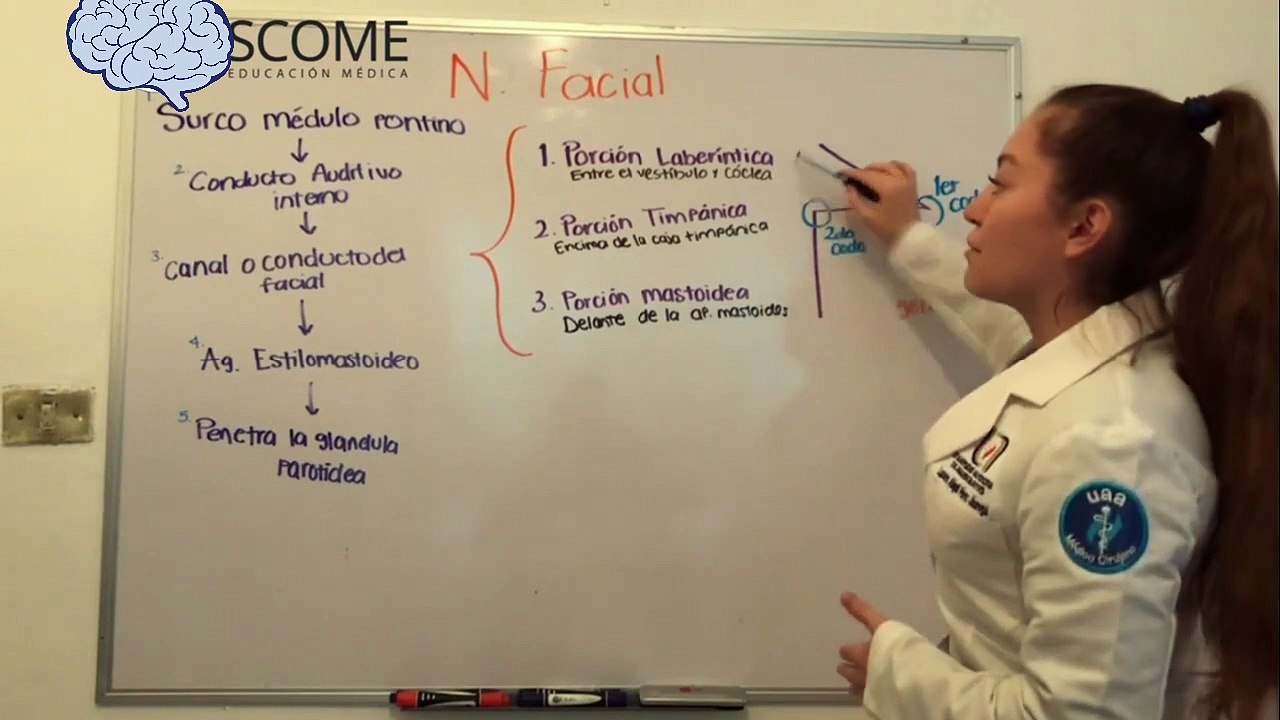 SCOME
EDUCACIÓN MÉDICA
N. Facial
Surco médulo pontino
2. Conducto Auditivo
interno
3. Canal o conducto del
facial
4. Ag. Estilomastoideo
5. Penetra la glandula
parotídea
1. Porción Laberíntica
Entre el vestíbulo y cóclea
2. Porción Timpánica
Encima de la caja timpánica
3. Porción mastoidea
Delante de la ap. mastoides
1er
2do
codo
uaa
Médico Cirujano